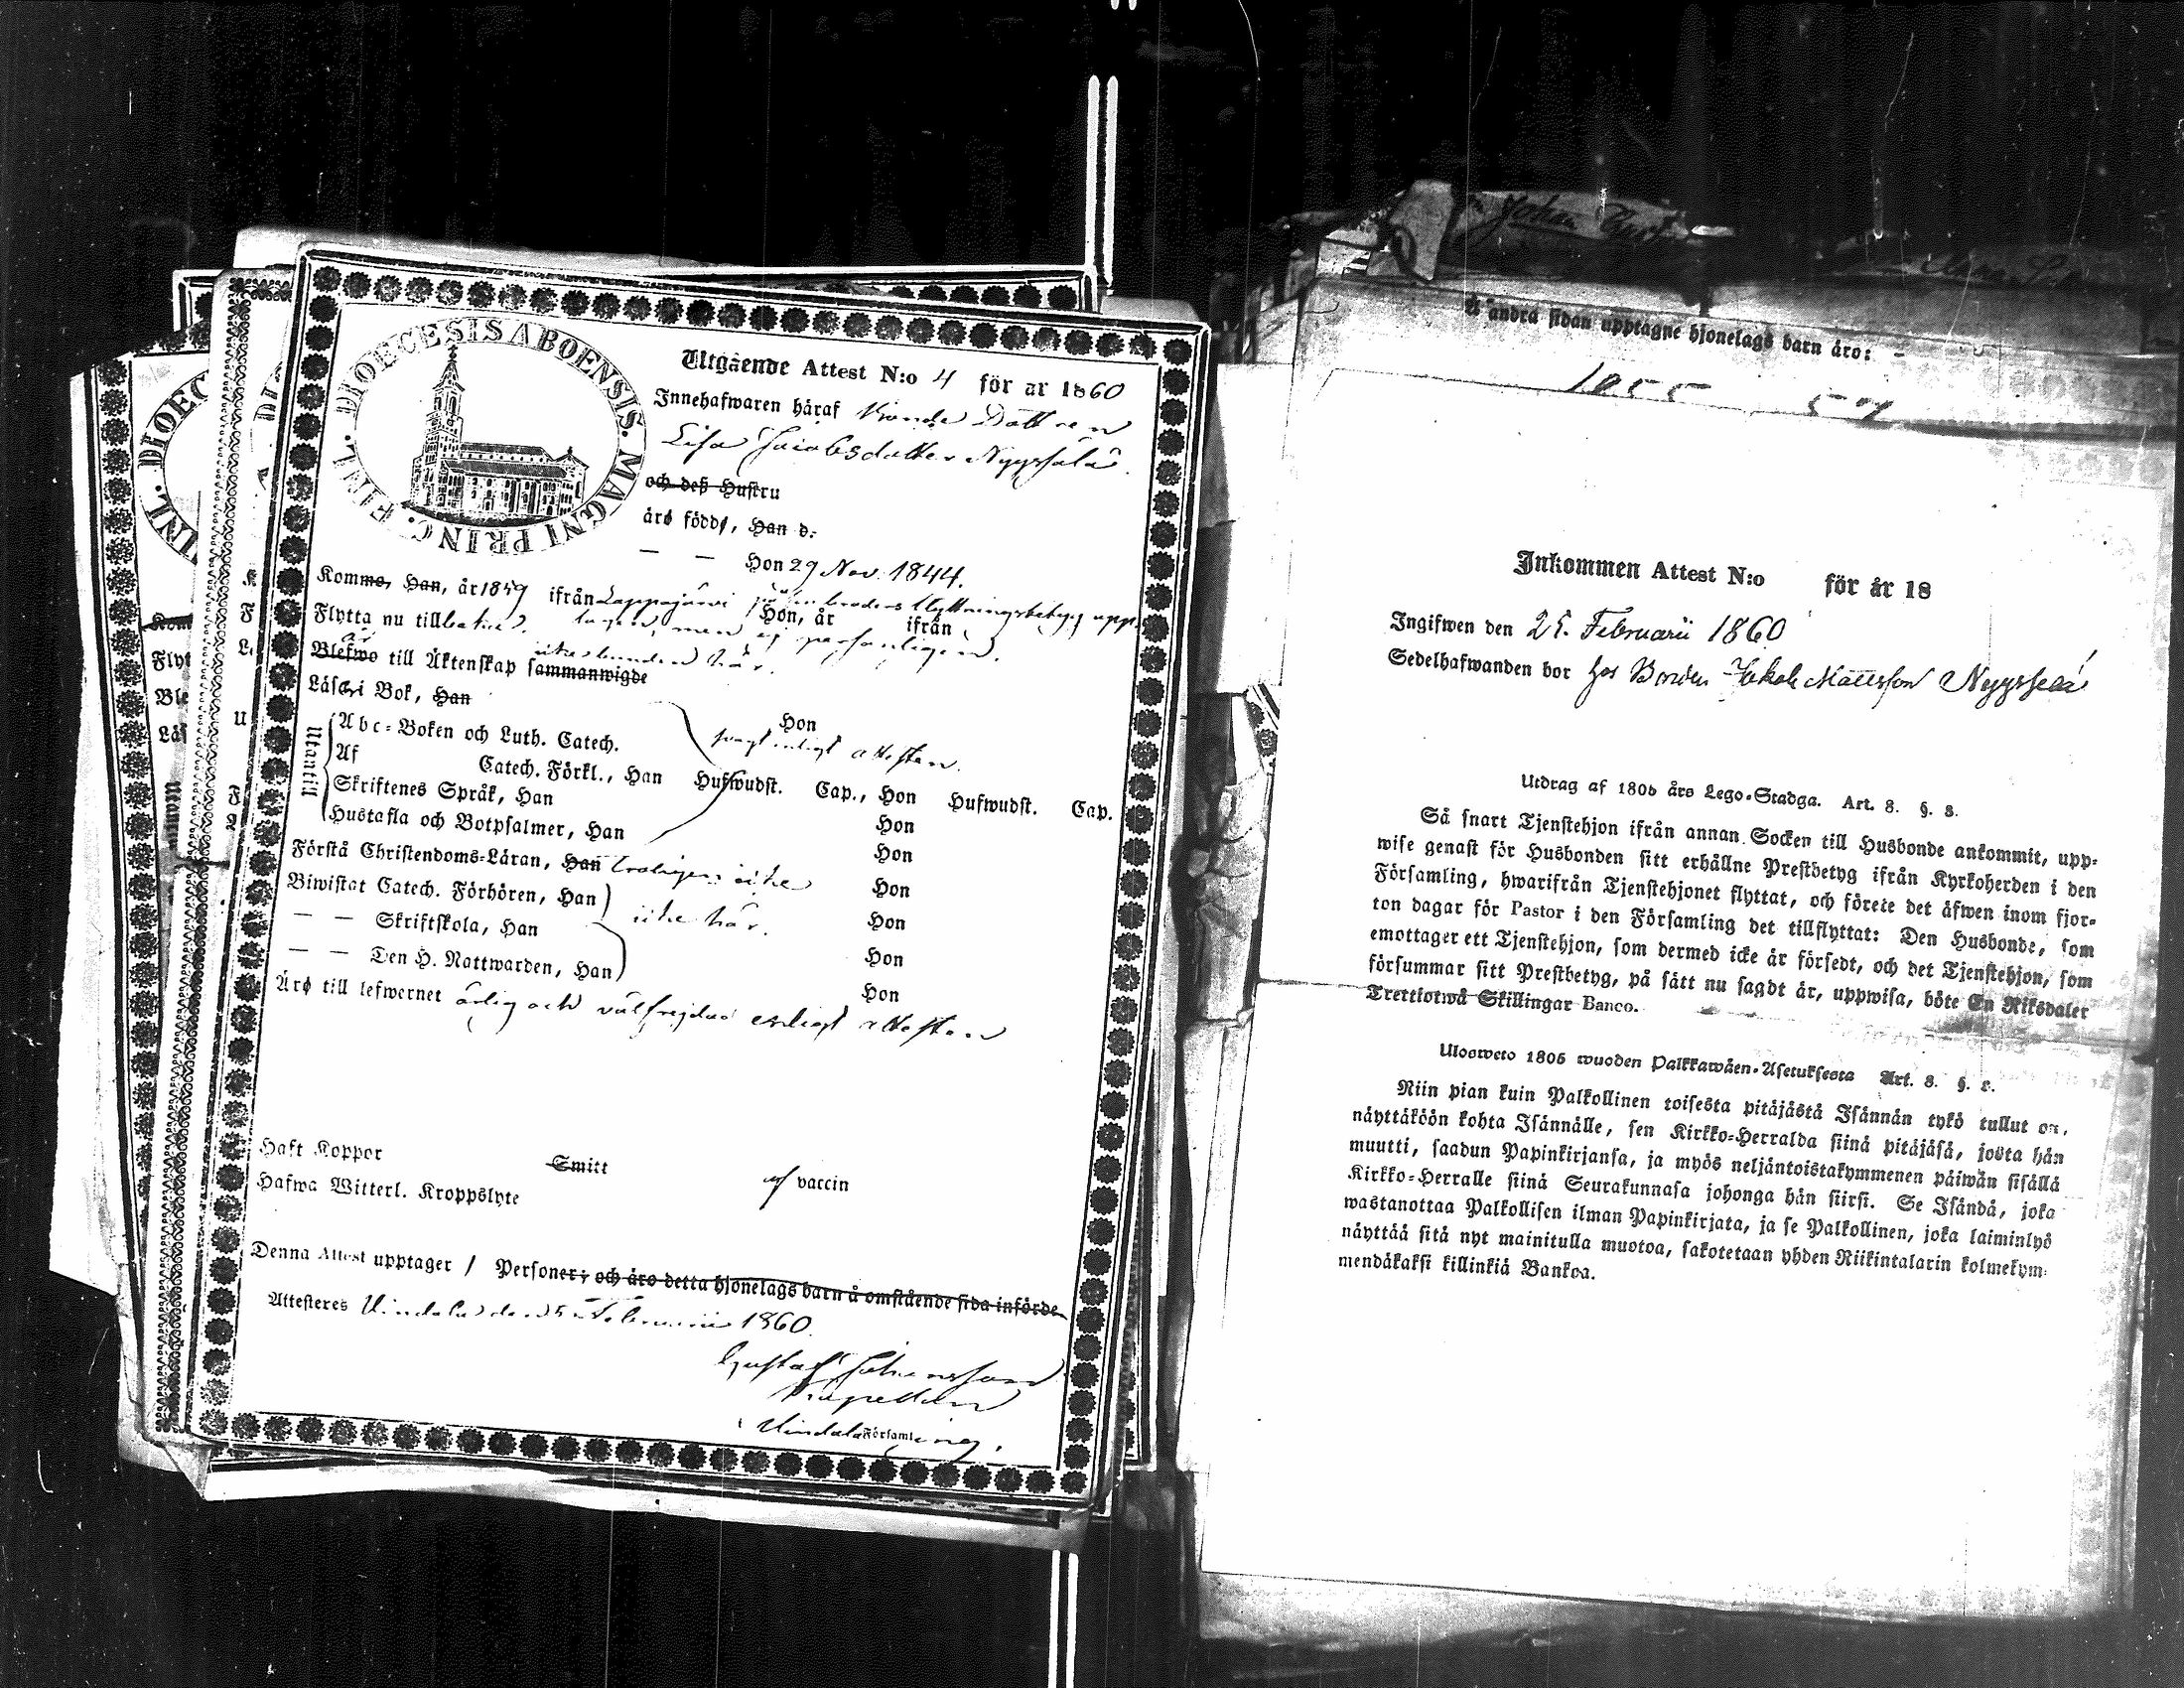 DIOECESIS ABOENSIS. MAGNI PRINC. FINL.
Utgående Attest N:o 4 för år 1860
Innehafwaren häraf Bonde Dottren
Lisa Jacobsdotter Nyyssälä.
och deß Hustru
äro födde, Han d.
— — Hon 29 Nov. 1844.
Komme, Han, år 1859 ifrån Lappajärvi på brodens flyttningsbetyg upp-
Hon, år ifrån
Flytta nu till baka. tagen, men ej personligen.
är ickebunden här.
Blefwo till Äktenskap sammanwigde
Läser i Bok, Han
Hon
Utantill
Abc-Boken och Luth. Catech.
svagt enligt attesten.
Af Catech. Förkl., Han Hufwudst. Cap., Hon Hufwudst. Cap.
Skriftenes Språk, Han Hon
Hustafla och Botpsalmer, Han Hon
Förstå Christendoms-Läran, Han troligen icke Hon
Biwistat Catech. Förhören, Han Hon
icke här.
— — Skriftskola, Han Hon
— — Den H. Nattwarden, Han Hon
Äro till lefwernet ärlig och välfrejdad enligt attesten
Haft Koppor Smitt af vaccin
Hafwa Witterl. Kroppslyte
Denna Attest upptager 1 Personer; och äro detta hjonelags barn å omstående sida införde
Attesteres Vindala den Februarii 1860.
Gustaf Johansson
Kapellan
i Vindala Församling.
DIOEC
Å andra sidan upptagne hjonelags barn äro:
1855 57
Inkommen Attest N:o för år 18
Ingifwen den 25. Februarii 1860
Sedelhafwanden bor hos Bonden Jakob Mattsson Nyyssälä
Utdrag af 1805 års Lego-Stadga. Art. 8. §. 8.
Så snart Tjenstehjon ifrån annan Socken till Husbonde ankommit, upp-
wise genast för Husbonden sitt erhållne Prestbetyg ifrån Kyrkoherden i den
Församling, hwarifrån Tjenstehjonet flyttat, och förete det äfwen inom fjor-
ton dagar för Pastor i den Församling det tillflyttat: Den Husbonde, som
emottager ett Tjenstehjon, som dermed icke är försedt, och det Tjenstehjon, som
försummar sitt Prestbetyg, på sätt nu sagdt är, uppwisa, böte En Riksdaler
Trettiotwå Skillingar Banco.
Ulosweto 1805 wuoden Palkkawäen-Asetuksesta Art. 8. §.
Niin pian kuin Palkollinen toisesta pitäjästä Isännän tykö tullut on,
näyttäköön kohta Isännälle, sen Kirkko-Herralda siinä pitäjäsä, josta hän
muutti, saadun Papinkirjansa, ja myös neljäntoistakymmenen päiwän sisällä
Kirkko-Herralle siinä Seurakunnasa johonga hän siirsi. Se Isändä, joka
wastanottaa Palkollisen ilman Papinkirjata, ja se Palkollinen, joka laiminlyö
näyttää sitä nyt mainitulla muotoa, sakotetaan yhden Riikintalarin kolmekym-
mendäkaksi killinkiä Bankoa.